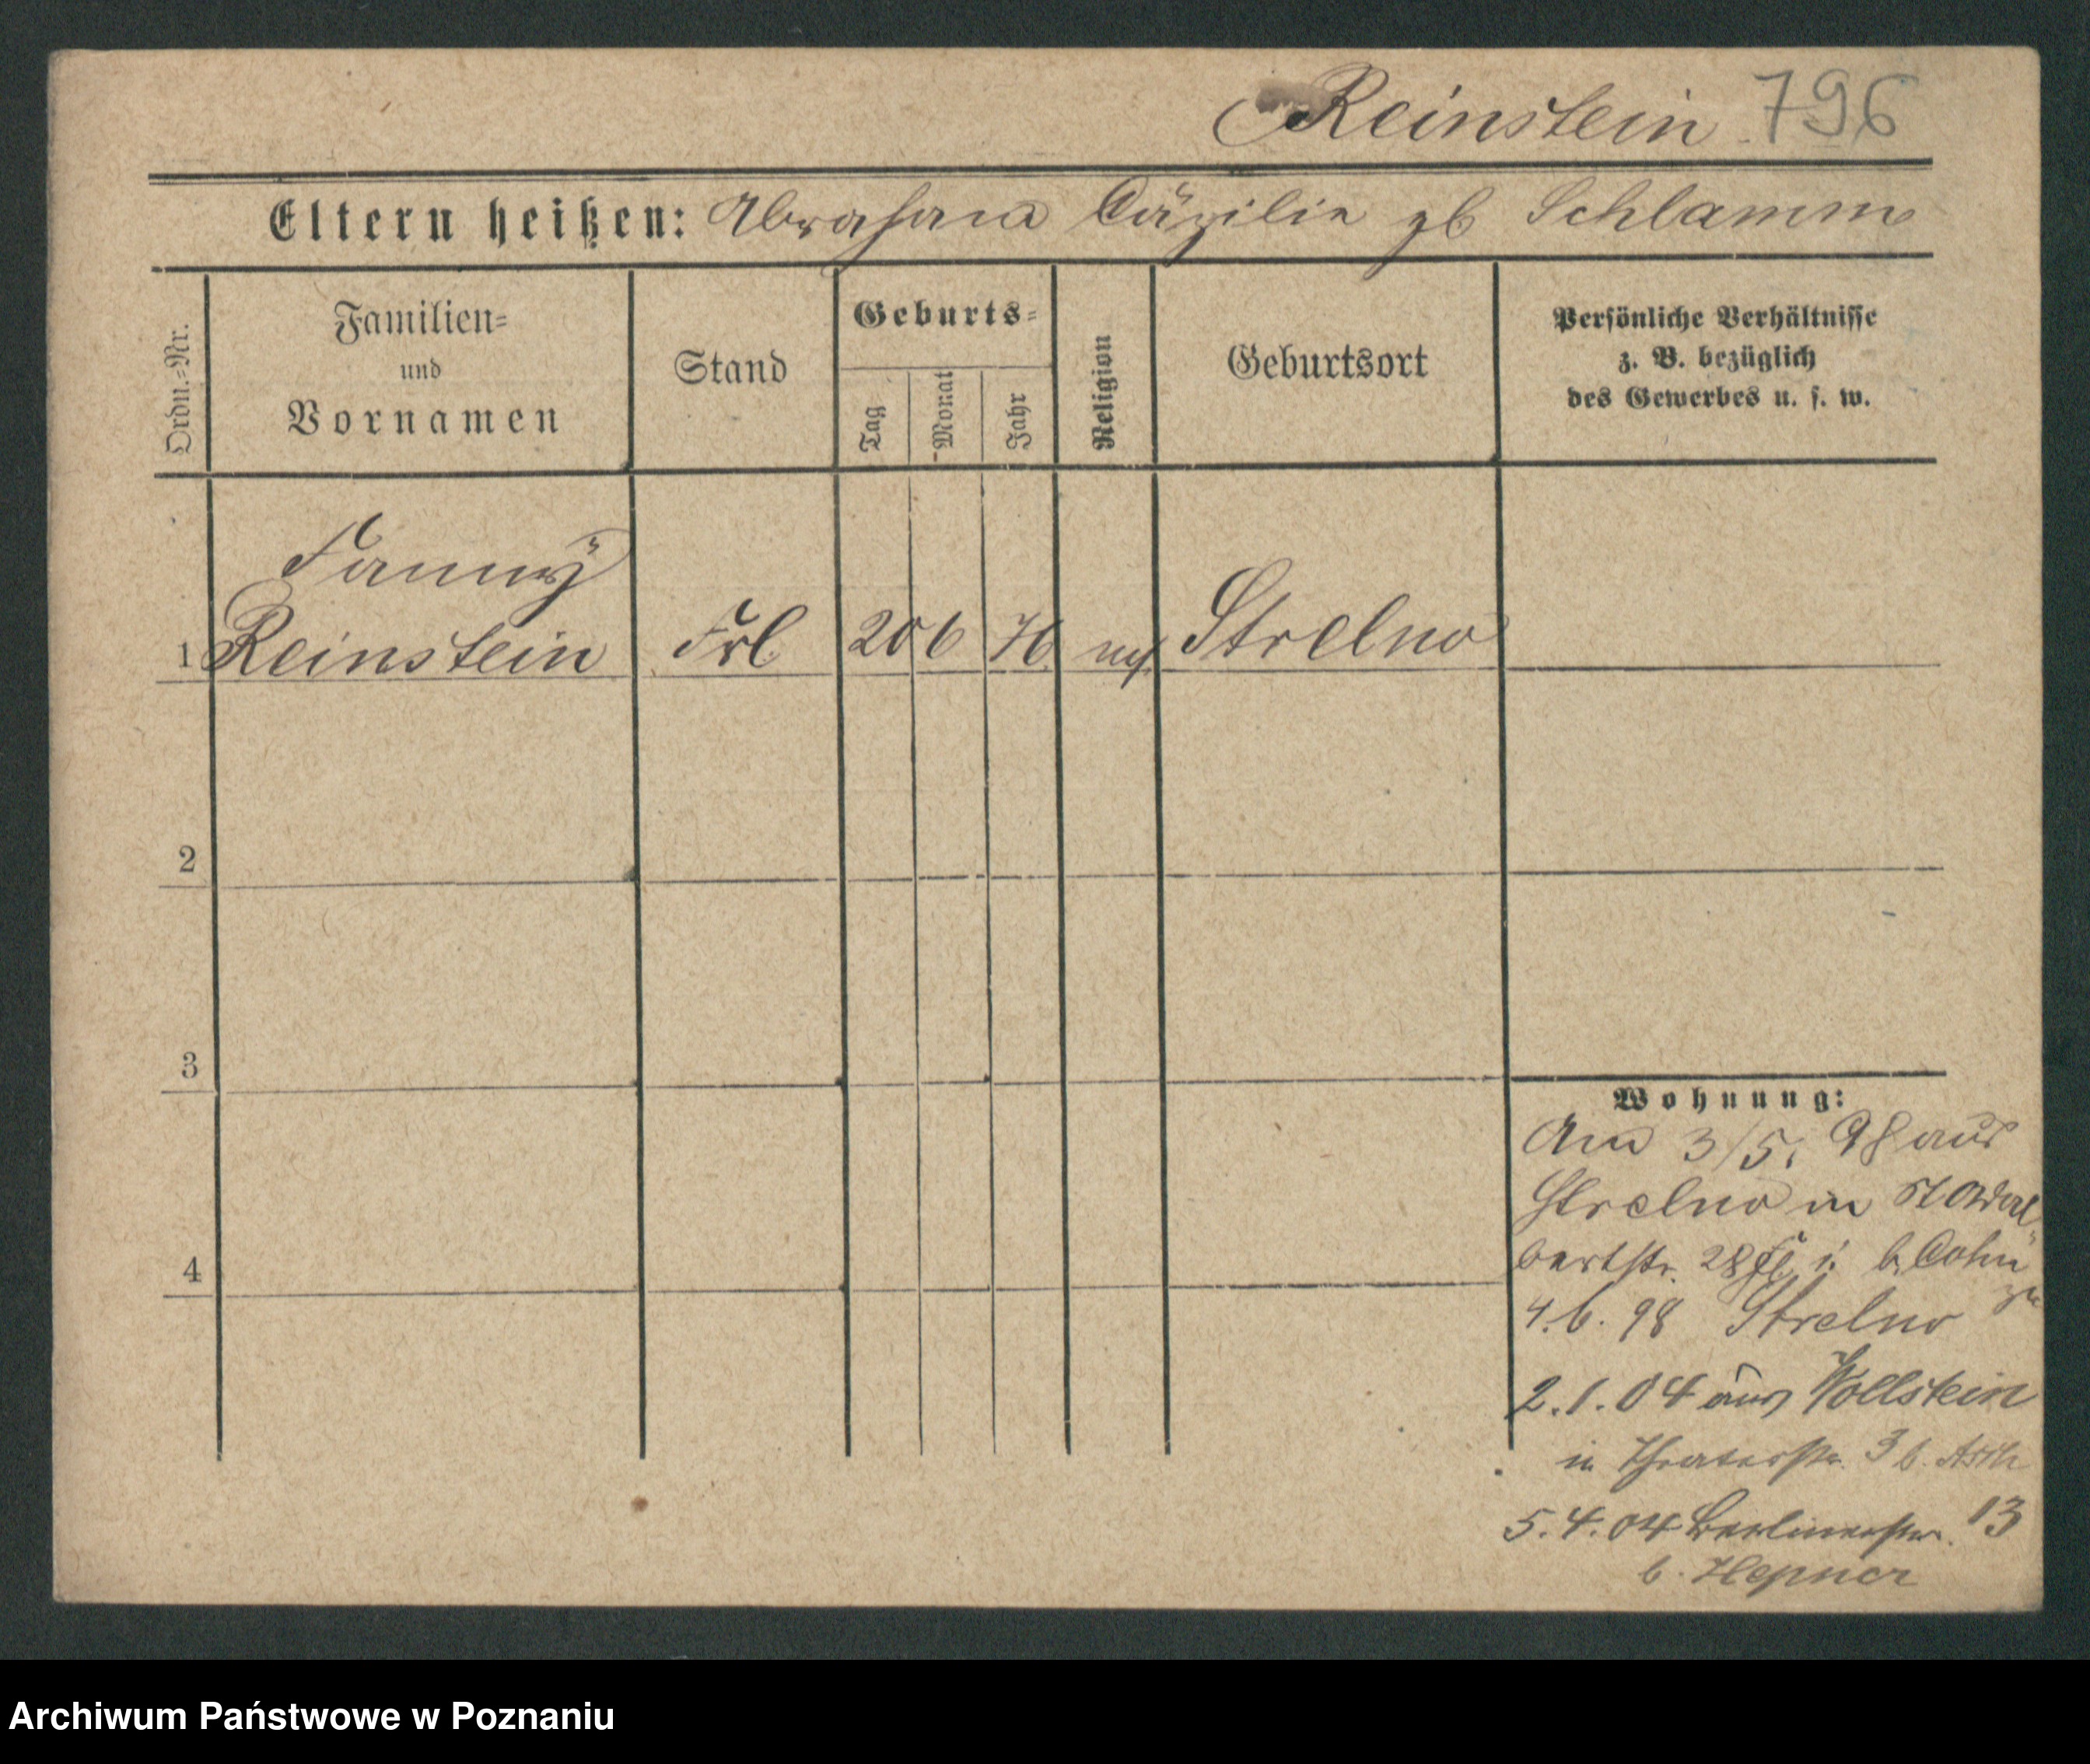 Reinstein 796
Eltern heißen: Abraham Cäzilie gb Schlamm
Ordn.-Nr.
Familien-
und
Vornamen
Stand
Geburts-
Tag
Monat
Jahr
Religion
Geburtsort
Persönliche Verhältnisse
z. B. bezüglich
des Gewerbes u. s. w.
Fanny
1 Reinstein Frl 20 6 76 Strelno
2
3
4
Wohnung:
Am 3/5. 98 aus
Strelno in St Adal
bertstr. 28 b. Cohn
4.6. 98 Strelno
2.1.04 aus Wollstein
in Theaterstr. 3 b.
5.4.04 Berlinerstr. 13
b. Hepner
Archiwum Państwowe w Poznaniu